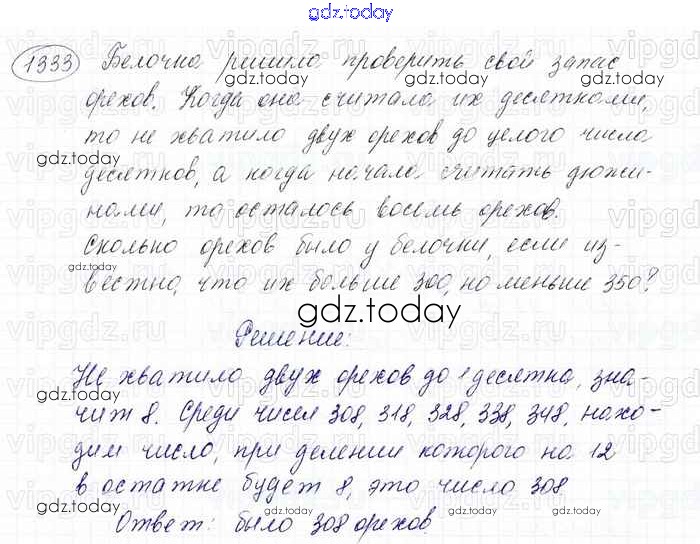 gdz.today
1333 Белочка решила проверить свой запас
орехов. Когда она считала их десятками,
то не хватило двух орехов до целого числа
десятков, а когда начала считать дюжи-
нами, то осталось восемь орехов.
Сколько орехов было у белочки, если из-
вестно, что их больше 300, но меньше 350?
gdz.today
Решение:
Не хватило двух орехов до 1 десятка, зна-
чит 8. Среди чисел 308, 318, 328, 338, 348, нахо-
дим число, при делении которого на 12
в остатке будет 8, это число 308
Ответ: было 308 орехов.